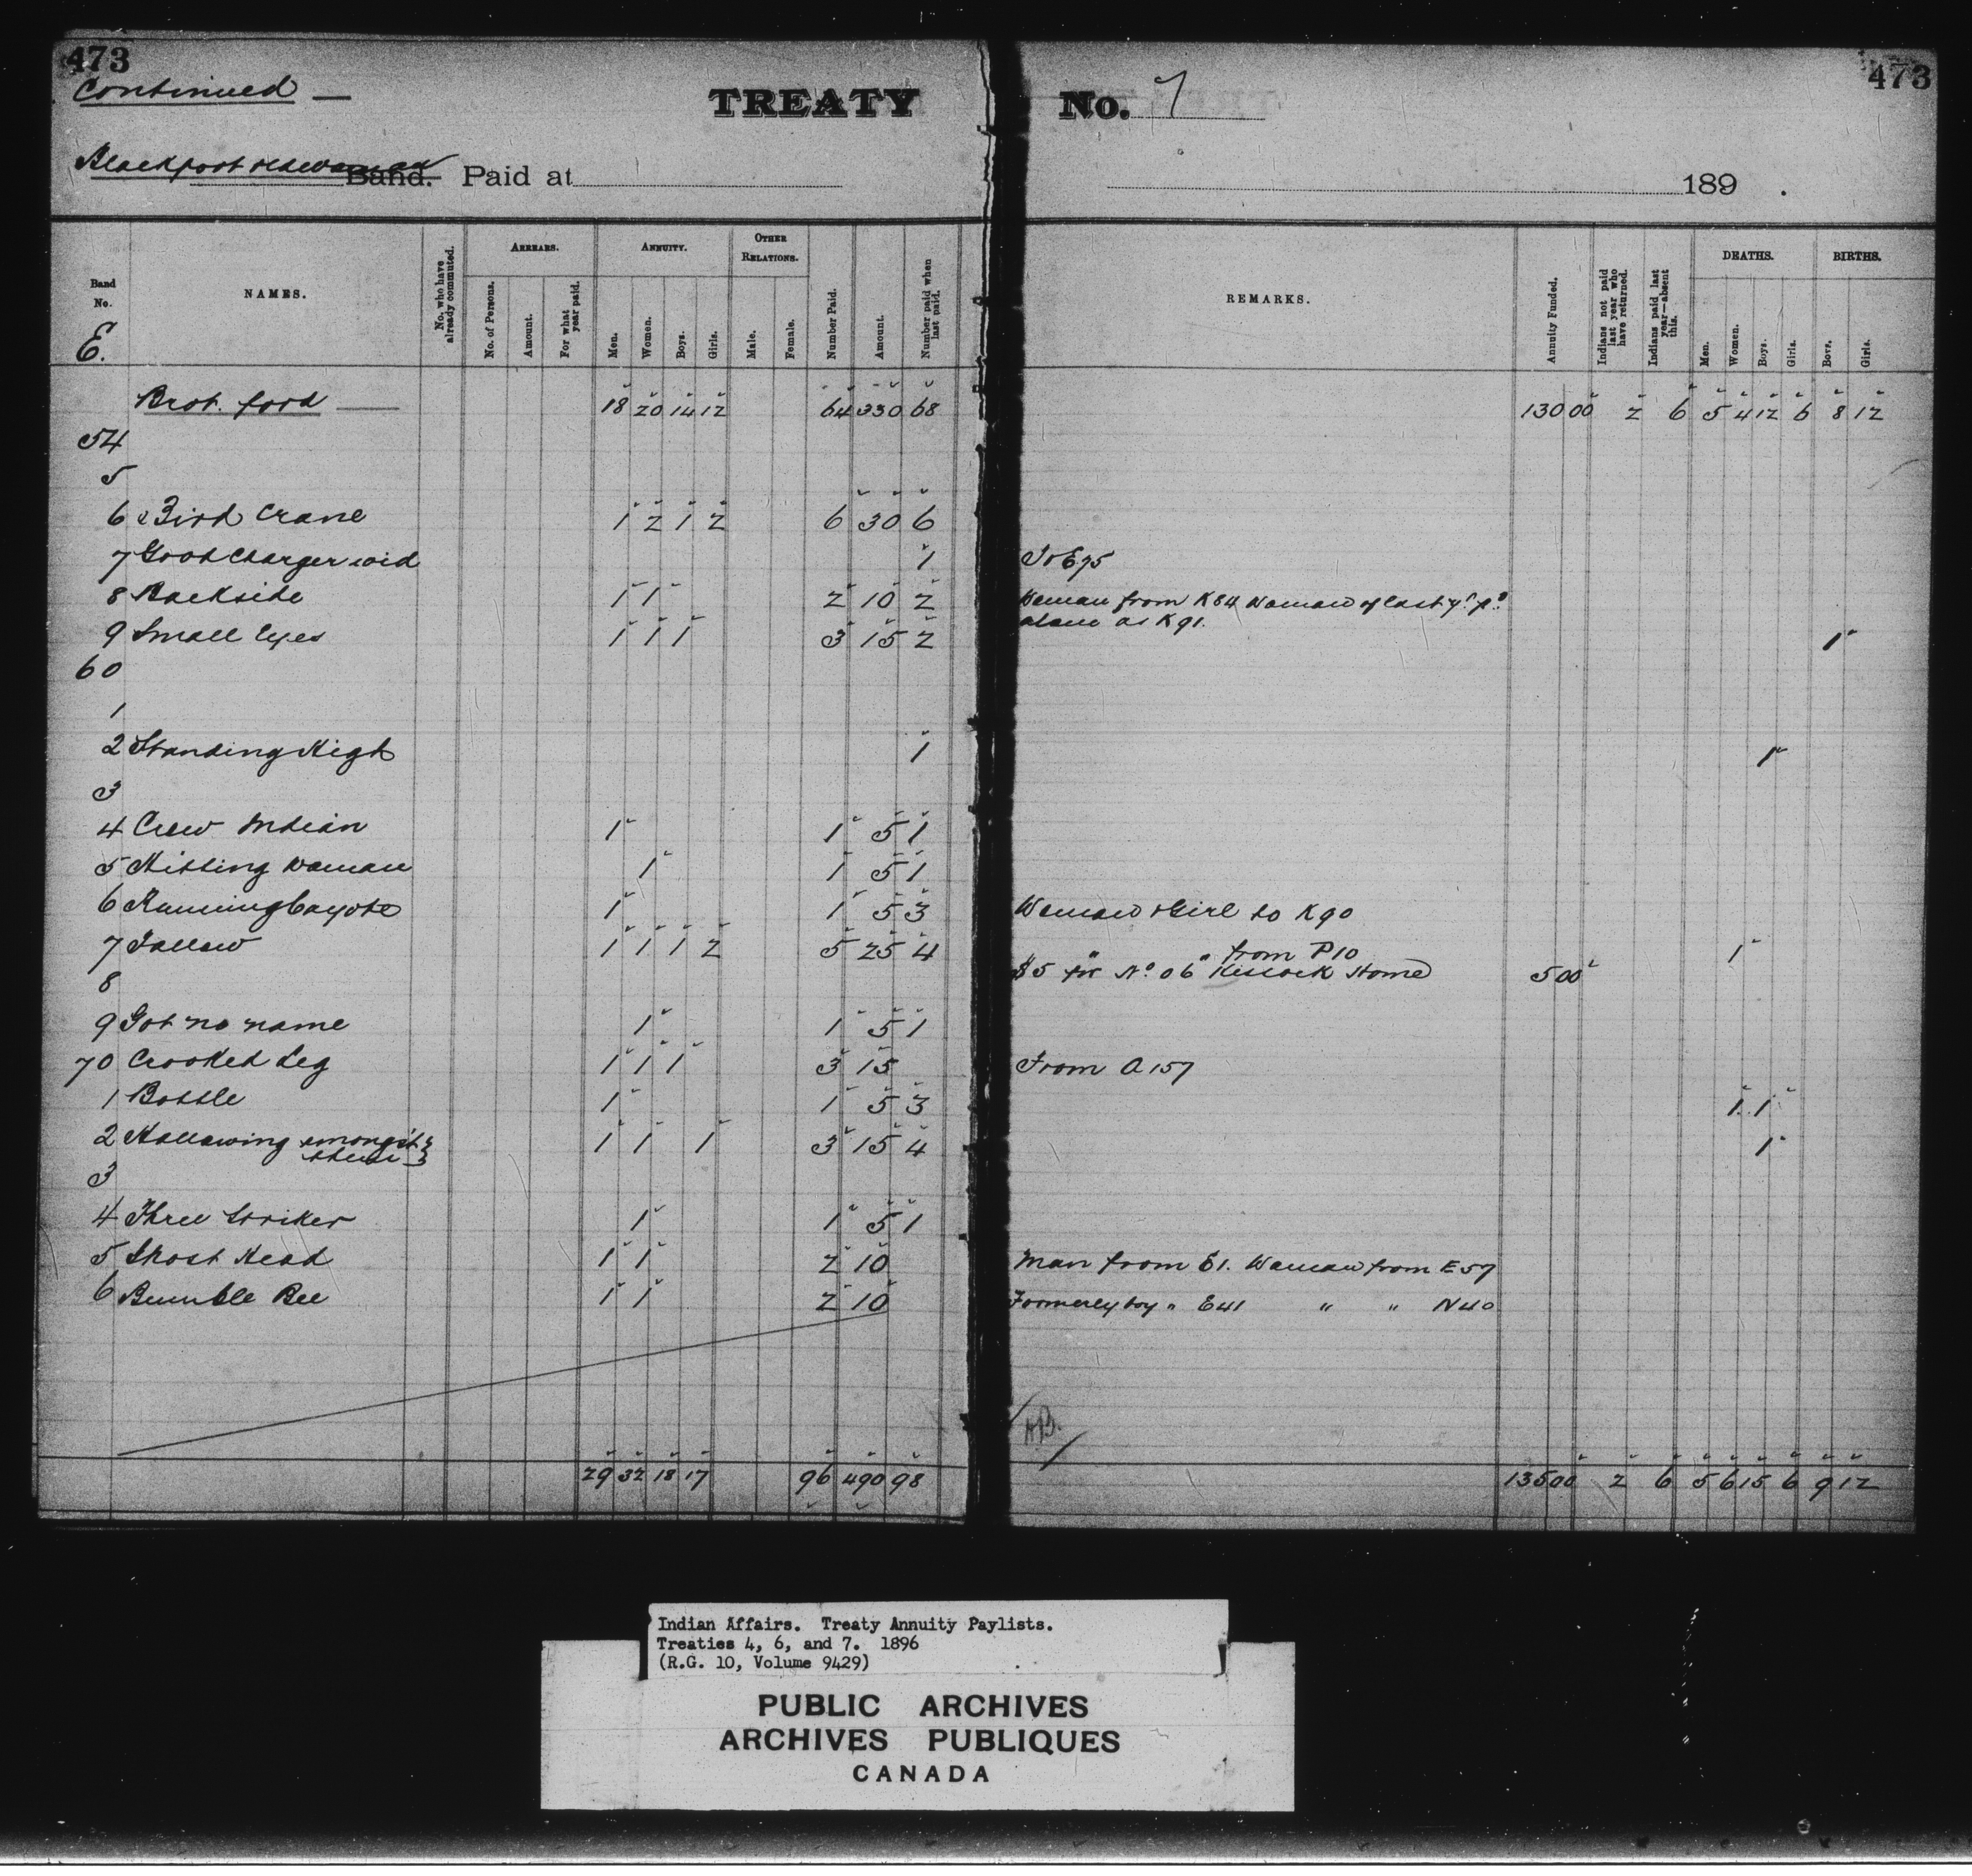 473 473
Continued —
TREATY No. 7
Blackfoot Band. Paid at 189 .
Band No. NAMES. No. who have already commuted. ARREARS. No. of Persons. Amount. For what year paid. ANNUITY. Men. Women. Boys. Girls. OTHER RELATIONS. Male. Female. Number Paid. Amount. Number paid when last paid. REMARKS. Annuity Funded. Indians not paid last year who have returned. Indians paid last year—absent this. DEATHS. Men. Women. Boys. Girls. BIRTHS. Boys. Girls.
E.
Brot. ford — 18 20 14 12 64 330 68 130 00 2 6 5 4 12 6 8 12
54
5
6 Bird Crane 1 2 1 2 6 30 6
7 Good Charger wid 1 To E75
8 Backside 1 1 2 10 2 Woman from K84 Woman of last yr pd
9 Small Eyes 1 1 1 3 15 2 alone as K91. 1
60
1
2 Standing High 1 1
3
4 Crow Indian 1 1 5 1
5 Hitting Woman 1 1 5 1
6 Running Cayote 1 1 5 3 Woman & Girl to K90
7 Tallow 1 1 1 2 5 25 4 " " from P10 1
8 $5 for No. 06 Kissock Home 5 00
9 Got no name 1 1 5 1
70 Crooked Leg 1 1 1 3 15 From A157
1 Bottle 1 1 5 3 1 1
2 Hallowing amongst 1 1 1 3 15 4 1
them
3
4 Three Striker 1 1 5 1
5 Ghost Head 1 1 2 10 Man from E1. Woman from E57
6 Bumble Bee 1 1 2 10 Formerly boy " E41 " " N40
29 32 18 17 96 490 98 135 00 2 6 5 6 15 6 9 12
Indian Affairs. Treaty Annuity Paylists.
Treaties 4, 6, and 7. 1896
(R.G. 10, Volume 9429)
PUBLIC ARCHIVES
ARCHIVES PUBLIQUES
CANADA